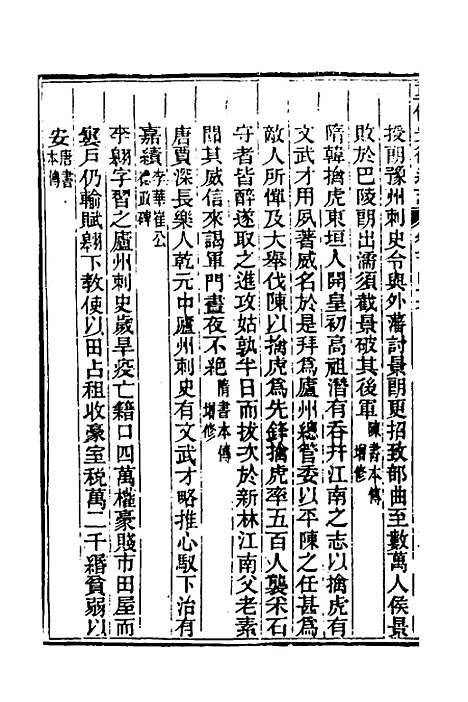 授朗豫州刺史令與外藩討景朗更招致部曲至數萬人侯景
敗於巴陵朗出濡須截景破其後軍陳書本傳增修
隋韓擒虎東垣人開皇初高祖潛有吞幷江南之志以擒虎有
文武才用夙著威名於是拜爲廬州總管委以平陳之任甚爲
敵人所憚及大舉伐陳以擒虎爲先鋒擒虎率五百人襲采石
守者皆醉遂取之進攻姑孰半日而拔次於新林江南父老素
聞其威信來謁軍門晝夜不絕隋書本傳增修
唐賈深長樂人乾元中廬州刺史有文武才略推心馭下治有
嘉績李華崔公德政碑
李翱字習之廬州刺史歲旱疫亡籍口四萬權豪賤市田屋而
窶戶仍輸賦翱下敎使以田占租收豪室稅萬二千緡貧弱以
安唐書本傳